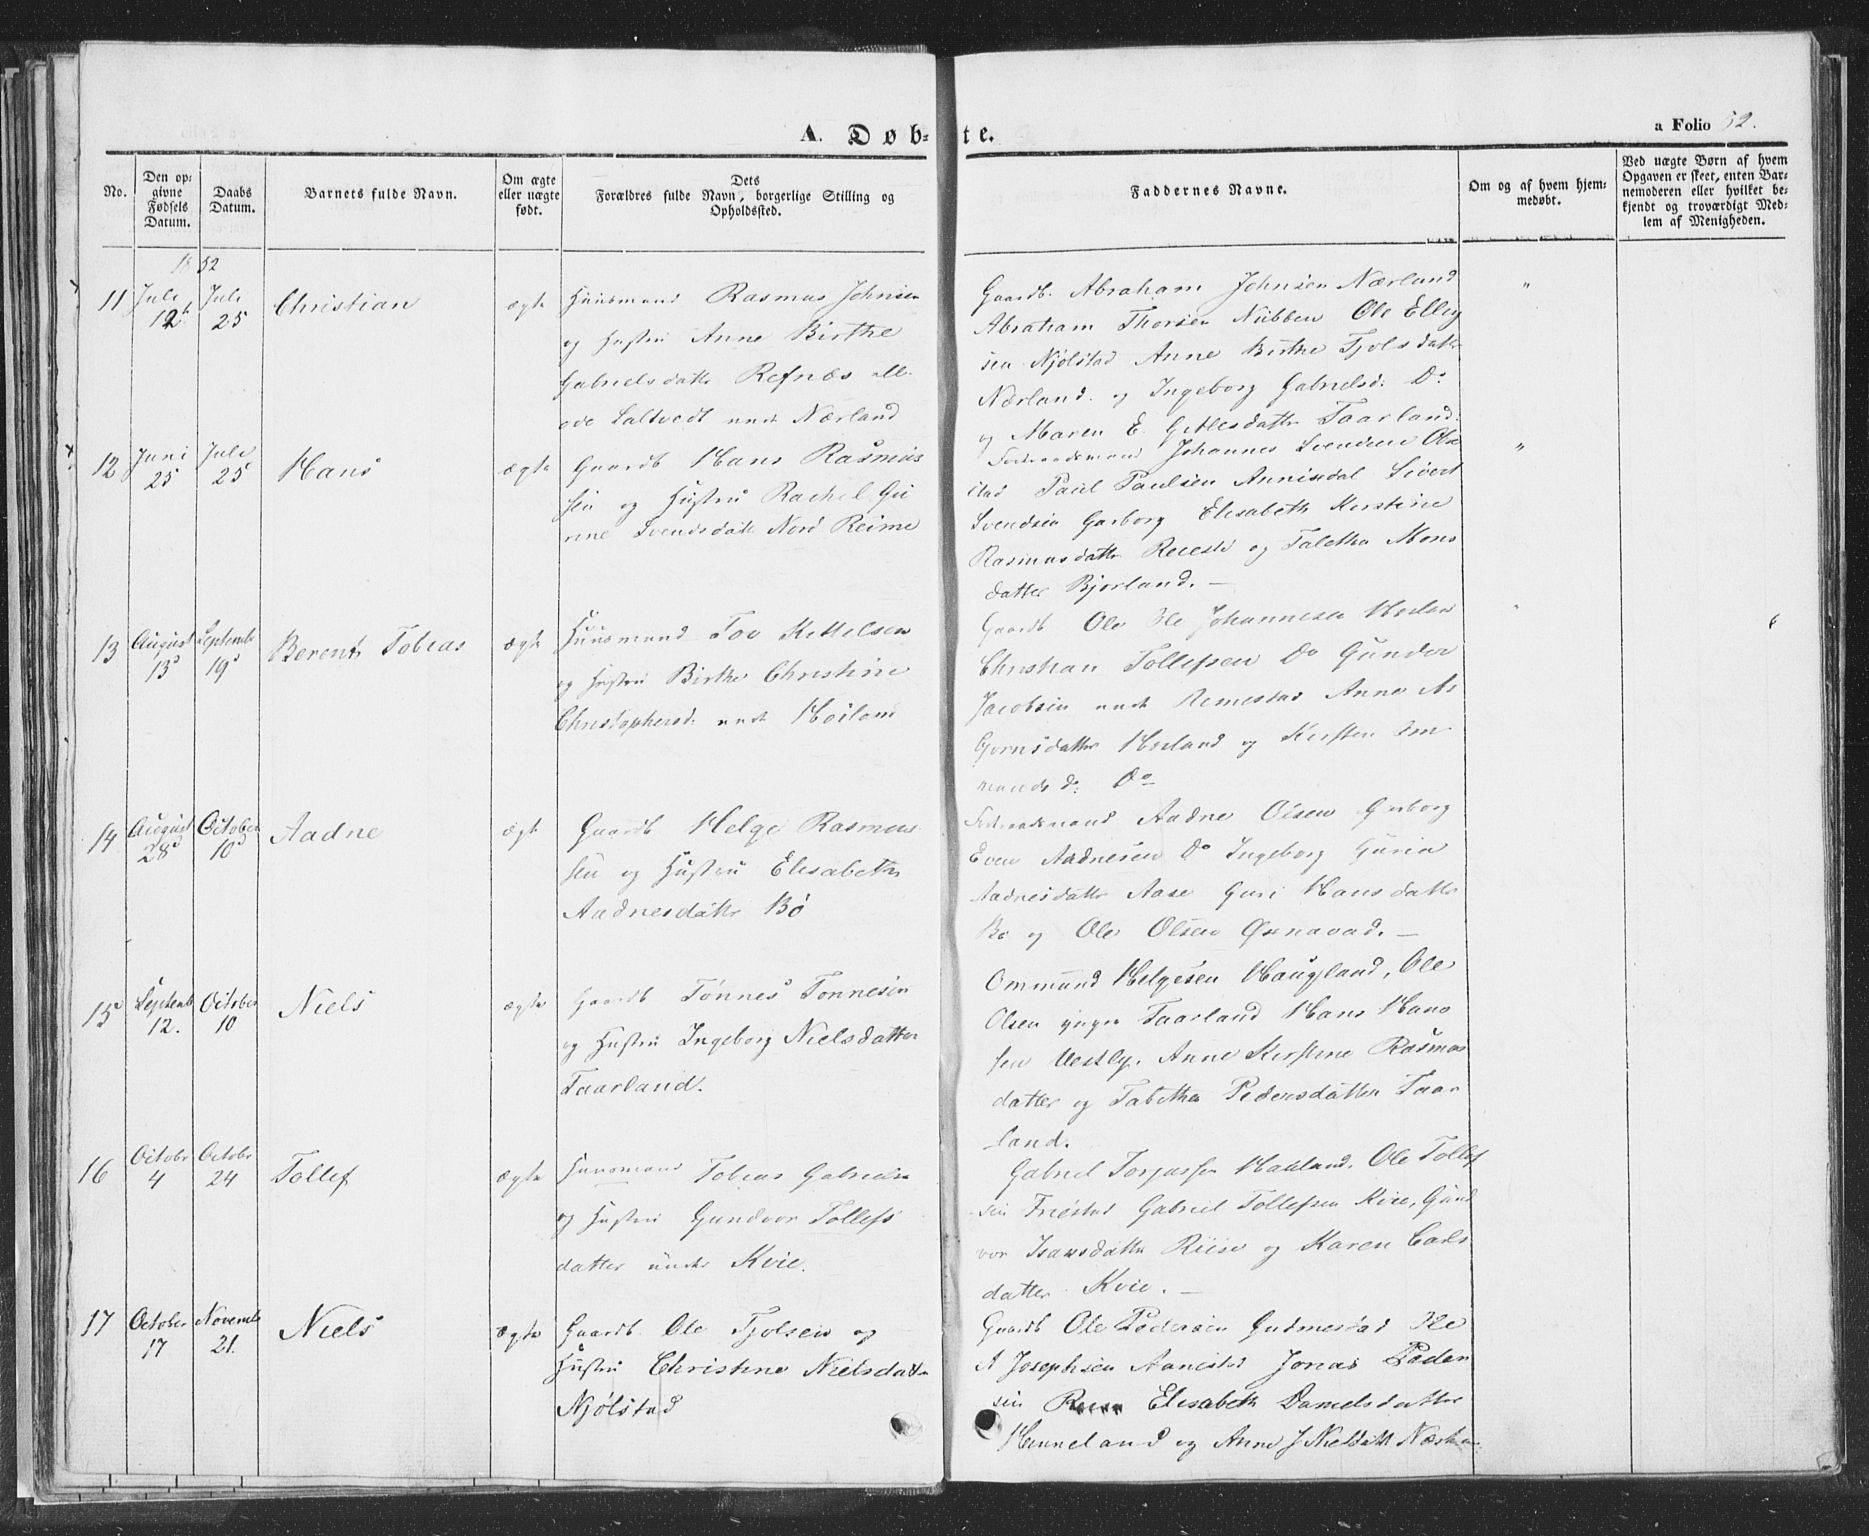 A. Døb-
te.
a Folio 52.
No.
Den op-
givne
Fødsels
Datum.
Daabs
Datum.
Barnets fulde Navn.
Om ægte
eller uægte
født.
Dets
Forældres fulde Navn, borgerlige Stilling og
Opholdssted.
Faddernes Navne.
Om og af hvem hjem-
medøbt.
Ved uægte Børn af hvem
Opgaven er skeet, enten Bar-
nemoderen eller hvilket be-
kjendt og troværdigt Med-
lem af Menigheden.
1852
11
Juli
12
Juli
25
Christian
ægte
Huusmand Rasmus Johnsen
og Hustru Anne Birthe
Gabrielsdatter Refnæs
Nærland
Gaardb. Abraham Johnsen Nærland
Abraham Thorsen Nubben Ole Elling
sen Njølstad Anne Birthe Tjølsdatter
Nærland og Ingeborg Gabrielsd: Do
og Maren E. Taarland
"
12
Juni
25
Juli
25
Hans
ægte
Gaardb Hans Rasmus
sen og Hustru Rachel Gu
rine Svendsdatter Nord Reime
Johannes Svendsen
stad Paul Paulsen Annisdal Sivert
Svendsen Garborg Elisabeth Kirstine
Rasmusdatter og Tabetha Mons
datter Bjorland. —
"
13
August
13
Septembr
19
Berent Tobias
ægte
Huusmand Tov Kittelsen
og Hustru Birthe Christine
Christophersd:
Gaardb Ole Johannesen
Christian Tollefsen Do Gunder
Jacobsen Remestad Anne As
og Kirsten Om
mundsd: Do
"
14
August
28
October
10
Aadne
ægte
Gaardb Helge Rasmus
sen og Hustru Elisabeth
Aadnesdatter Bø
Aadne Olsen Garborg
Even Aadnesen Do Ingeborg Guria
Aadnesdatter Aase Guri Hansdatter
Bø og Ole Olsen Øxnavad. —
15
Septembr
12.
October
10
Niels
ægte
Gaardb Tønnes Tonnesen
og Hustru Ingeborg Nielsdatter
Taarland.
Ommund Helgesen Haugland, Ole
Olsen yngre Taarland Hans Hans
sen Vestly, Anne Kirstine Rasmus
datter og Tabetha Pedersdatter Taar
land.
16
Octobr
4
Octobr
24
Tollef
ægte
Huusmand Tobias Gabrielsen
og Hustru Gundvor Tollefs
datter under Kvie.
Gabriel Torjussen Haaland, Ole Tollef
sen Friestad Gabriel Tollefsen Kvie, Gund
vor Isaksdatter Riise og Karen Carls
datter Kvie. —
17
October
17
Novembr
21.
Niels
ægte
Gaardb. Ole Tjolsen og
Hustru Christine Nielsdatter
Njølstad
Gaardb Ole Pedersen Gudmestad Ole
A Josephsen Aanestad Jonas Peder
sen Elisabeth Danielsdatter
Hanneland og Anne J Nielsdatter